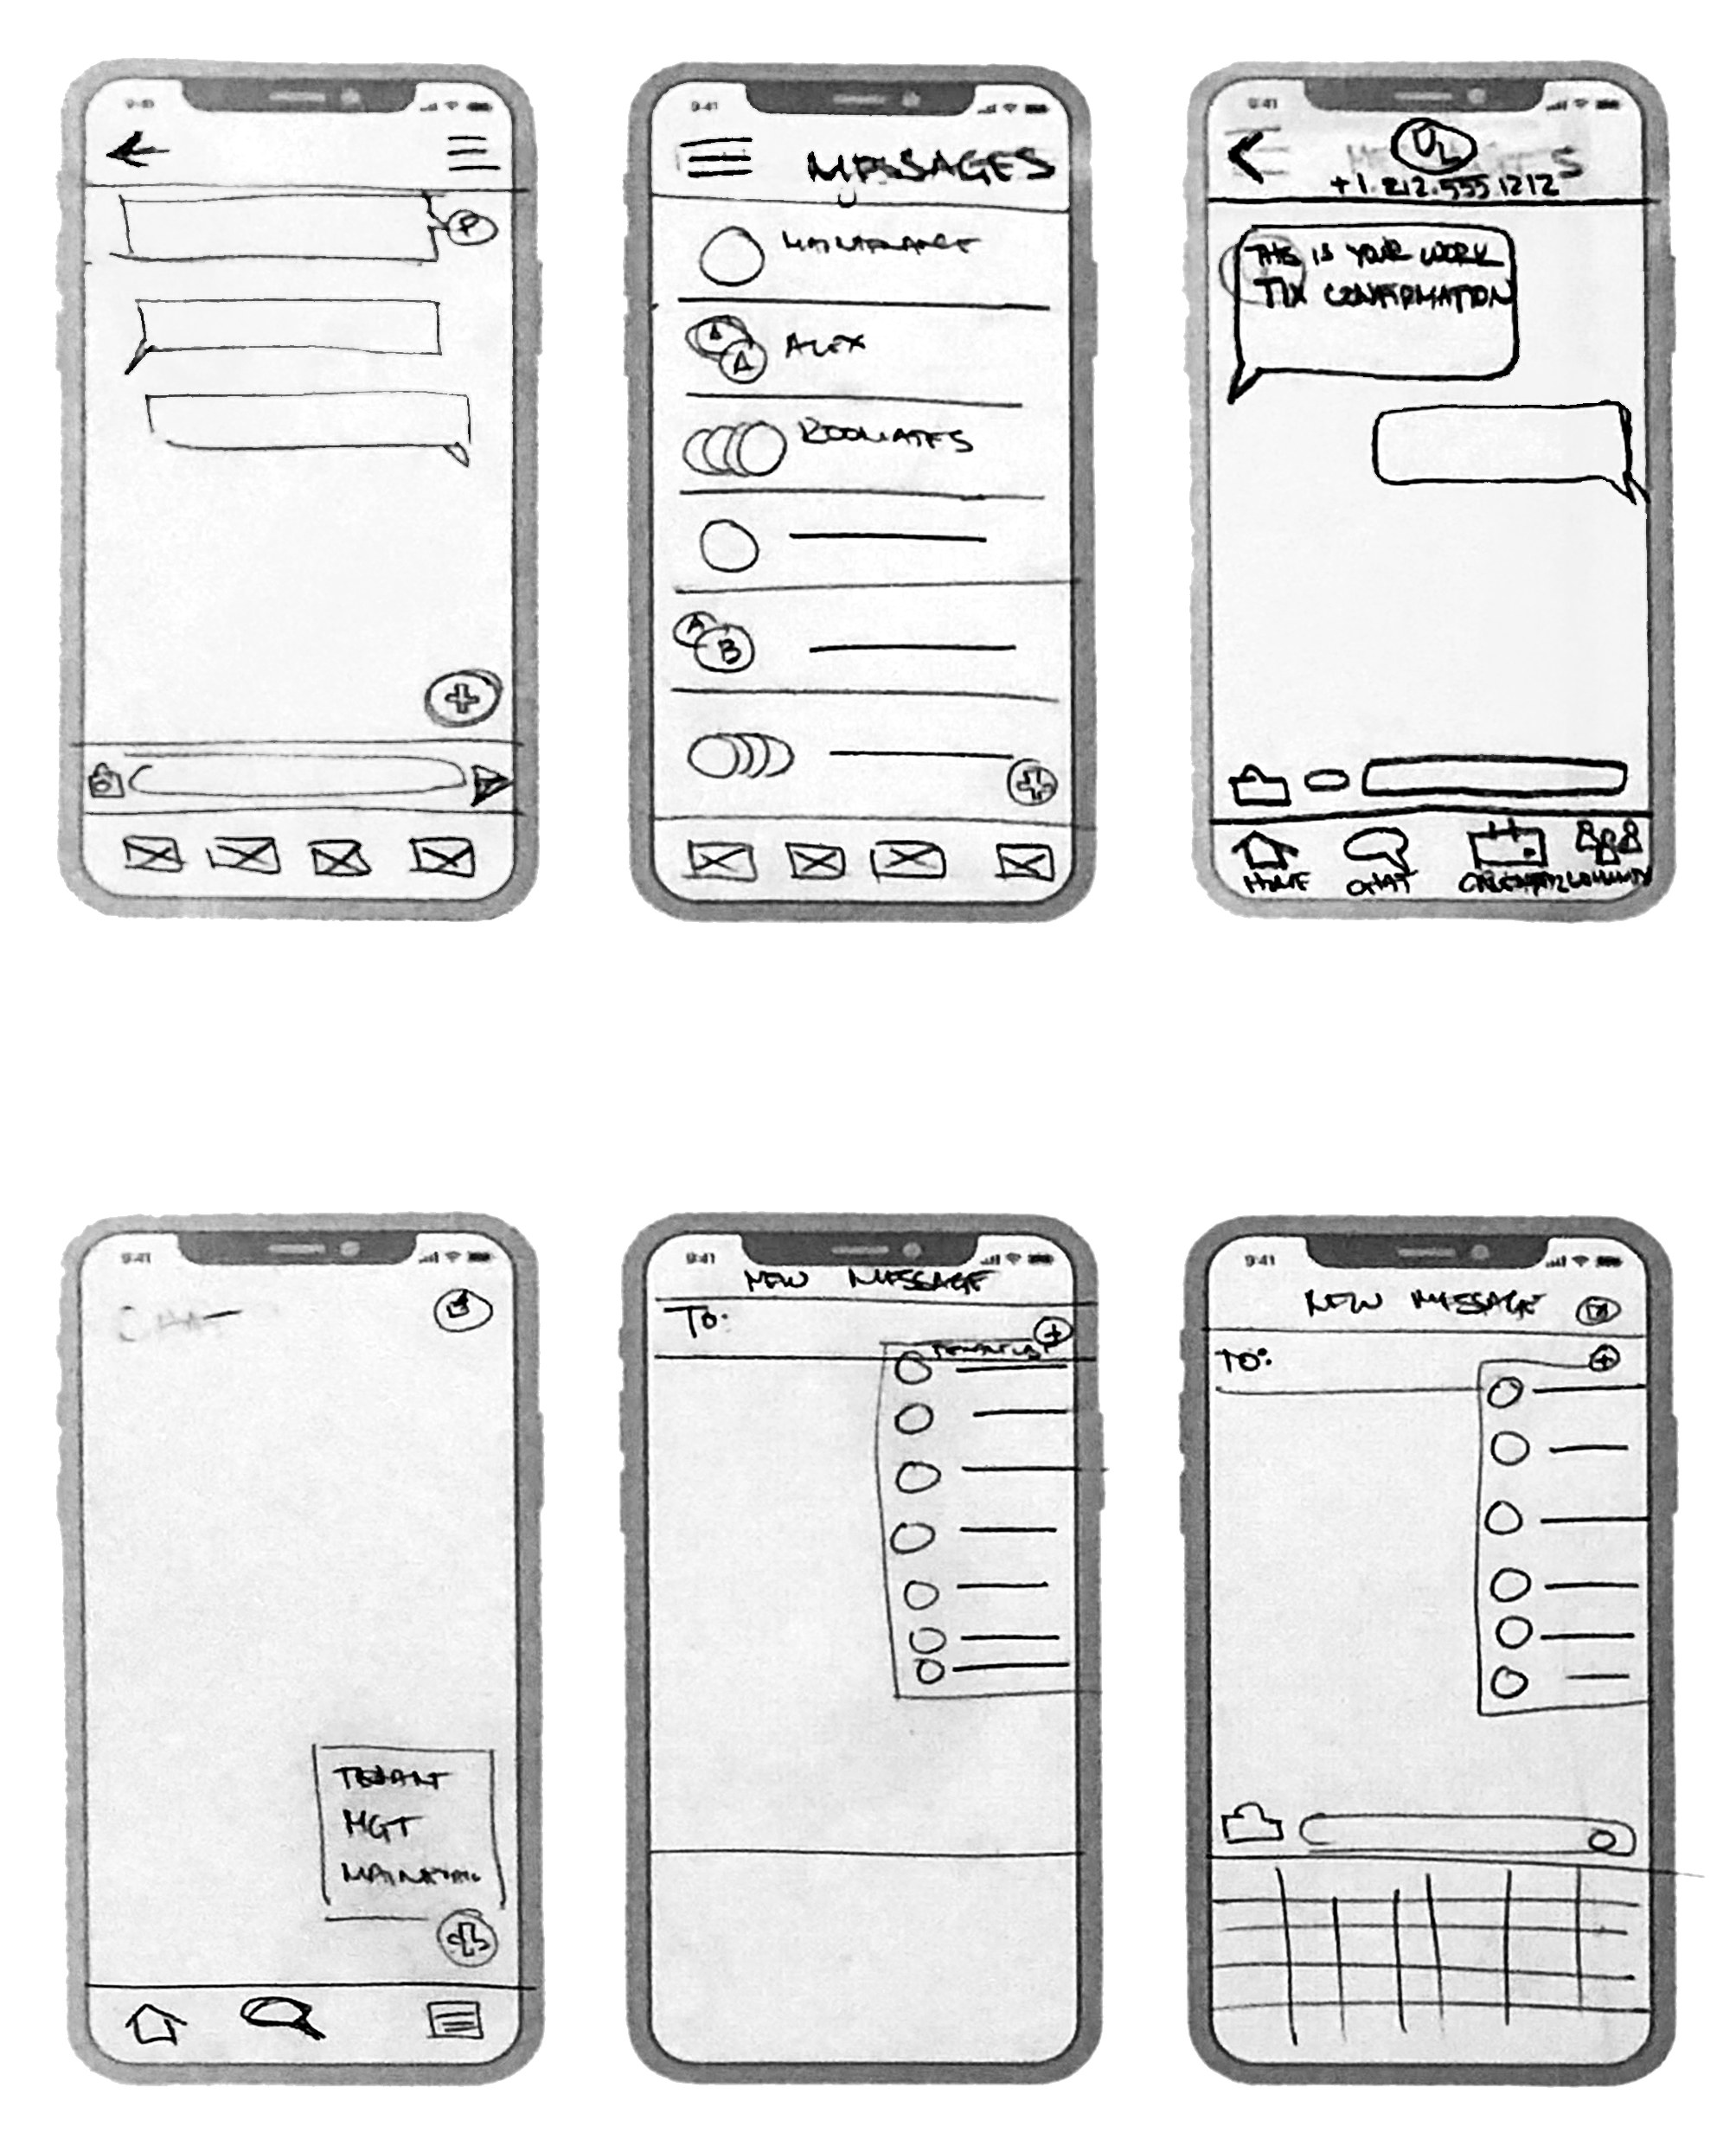 9:41
P
9:41
MESSAGES
MAINTENANCE
A
A
ALEX
ROOMATES
A
B
9:41
+1.212.555 1212
THIS IS YOUR WORK
TIX CONFIRMATION
HOME
CHAT
CALENDAR
COMMUNITY
9:41
CHAT
TENANT
MGT
9:41
NEW MESSAGE
TO:
9:41
NEW MESSAGE
TO: